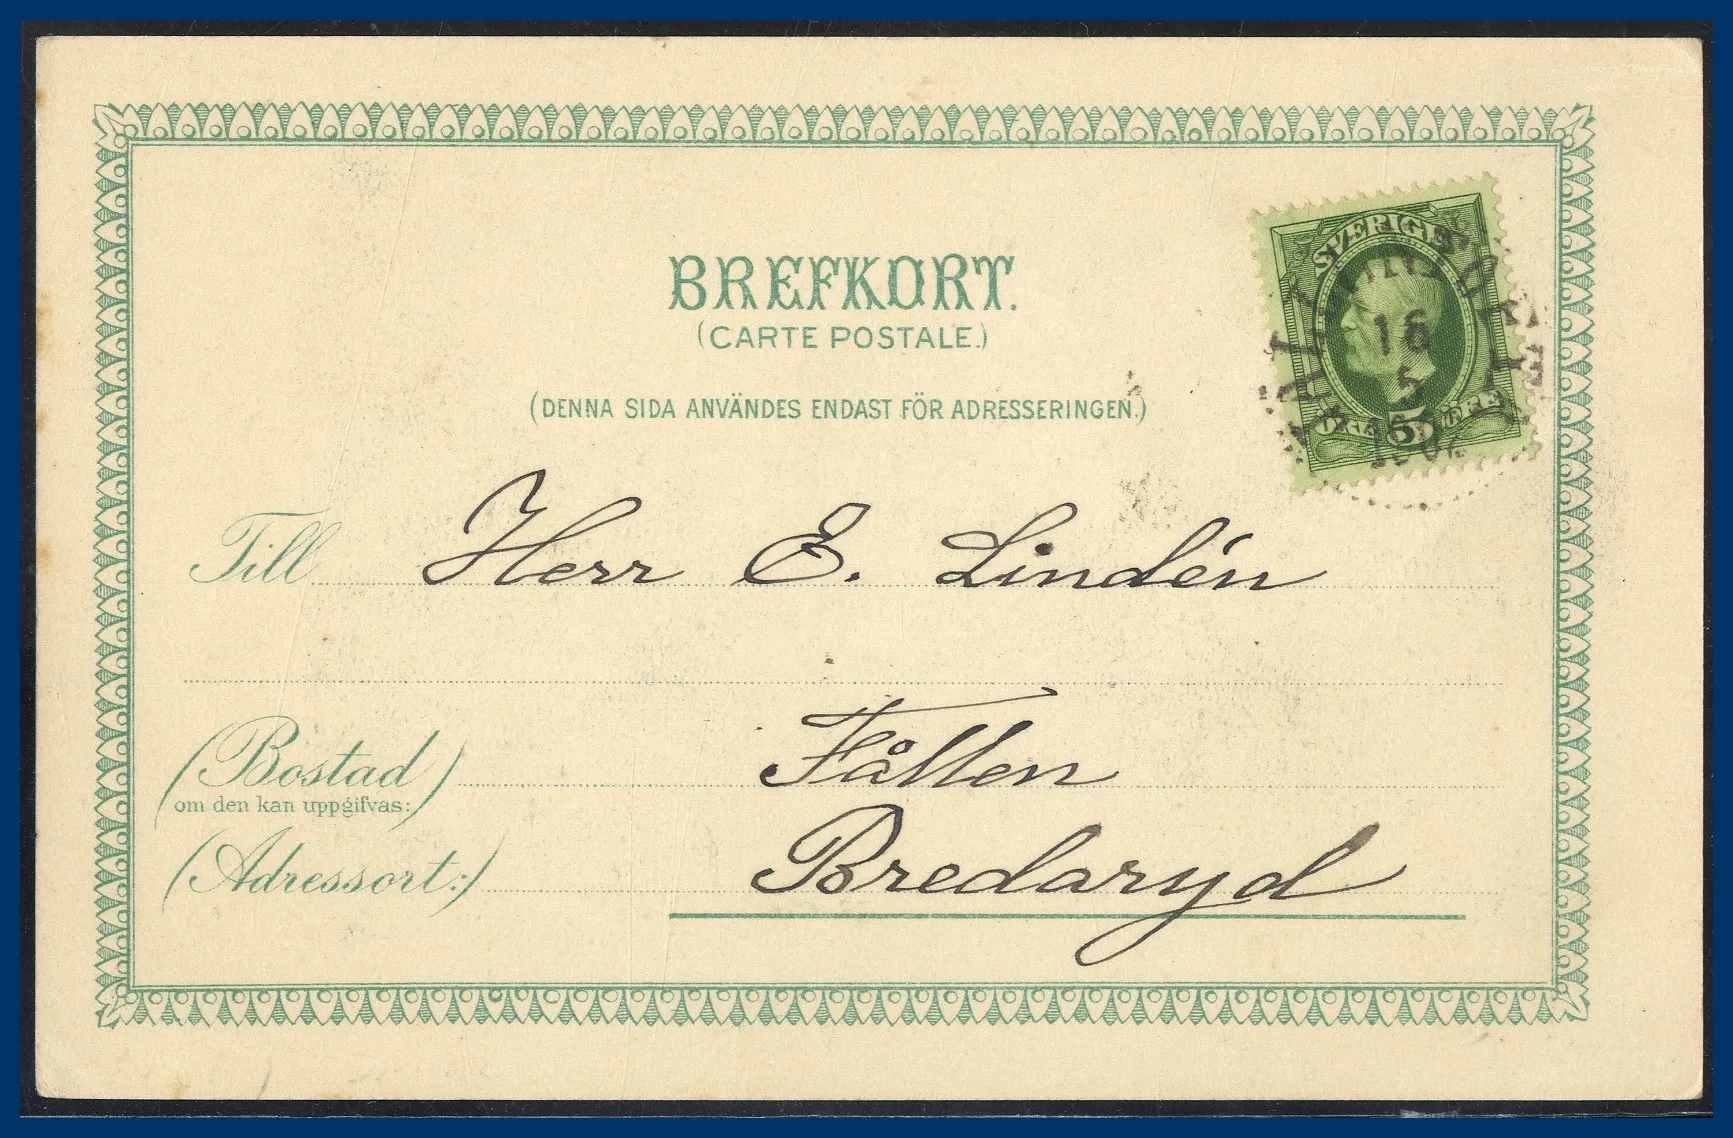 BREFKORT.
(CARTE POSTALE.)
(DENNA SIDA ANVÄNDES ENDAST FÖR ADRESSERINGEN.)
SVERIGE
16
5
FEM 5 ÖRE
Till Herr E. Lindén
(Bostad) Fållen
om den kan uppgifvas:
(Adressort:) Bredaryd